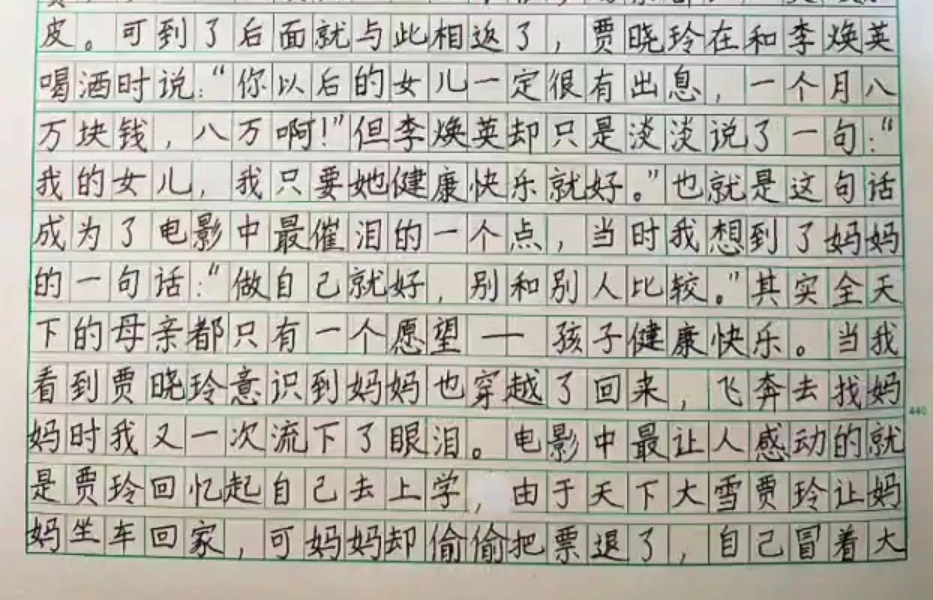 皮。可到了后面就与此相返了，贾晓玲在和李焕英
喝酒时说：“你以后的女儿一定很有出息，一个月八
万块钱，八万啊！”但李焕英却只是淡淡说了一句：“
我的女儿，我只要她健康快乐就好。”也就是这句话
成为了电影中最催泪的一个点，当时我想到了妈妈
的一句话：“做自己就好，别和别人比较。”其实全天
下的母亲都只有一个愿望一孩子健康快乐。当我
看到贾晓玲意识到妈妈也穿越了回来，飞奔去找妈
妈时我又一次流下了眼泪。电影中最让人感动的就
是贾玲回忆起自己去上学，由于天下大雪贾玲让妈
妈坐车回家，可妈妈却偷偷把票退了，自己冒着大
440